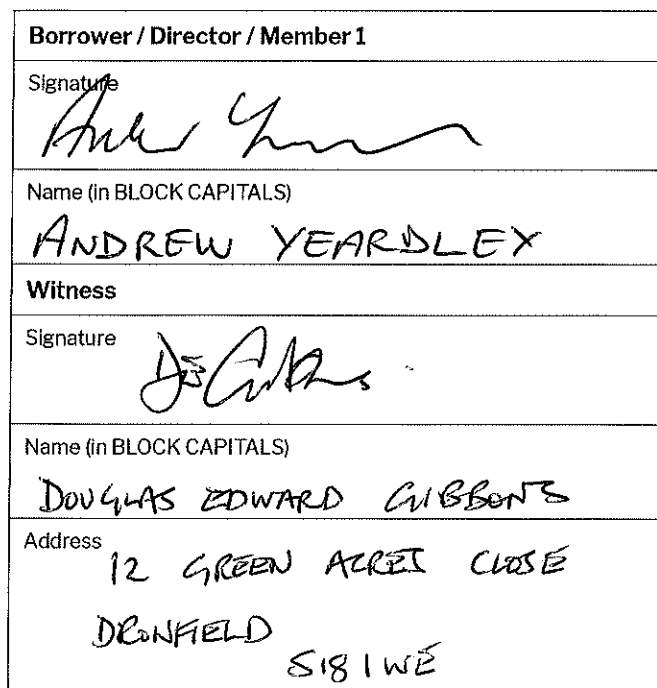 Borrower / Director / Member 1
Signature
Name (in BLOCK CAPITALS)
ANDREW YEARDLEY
Witness
Signature
Name (in BLOCK CAPITALS)
DOUGLAS EDWARD GIBBONS
Address
12 GREEN ACRES CLOSE
DRONFIELD
S18 1WE